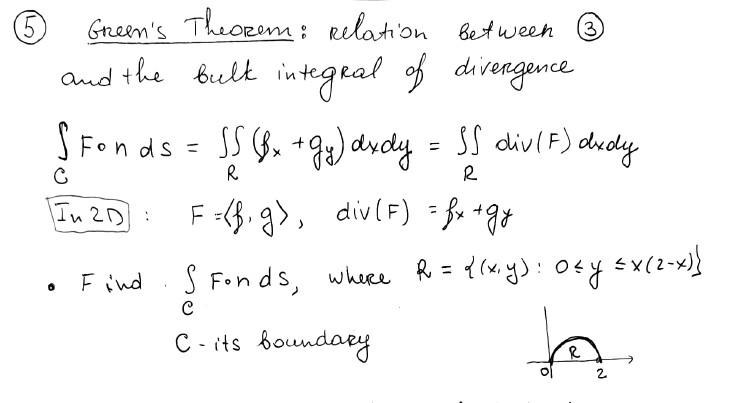 ⑤ Green's Theorem: relation between ③
and the bulk integral of divergence
∫_C F∘n ds = ∬_R (f_x + g_y) dxdy = ∬_R div(F) dxdy
In 2D : F = <f, g>, div(F) = f_x + g_y
• Find ∫_C F∘n ds, where R = {(x,y): 0 ≤ y ≤ x(2-x)}
C - its boundary
R
0 2